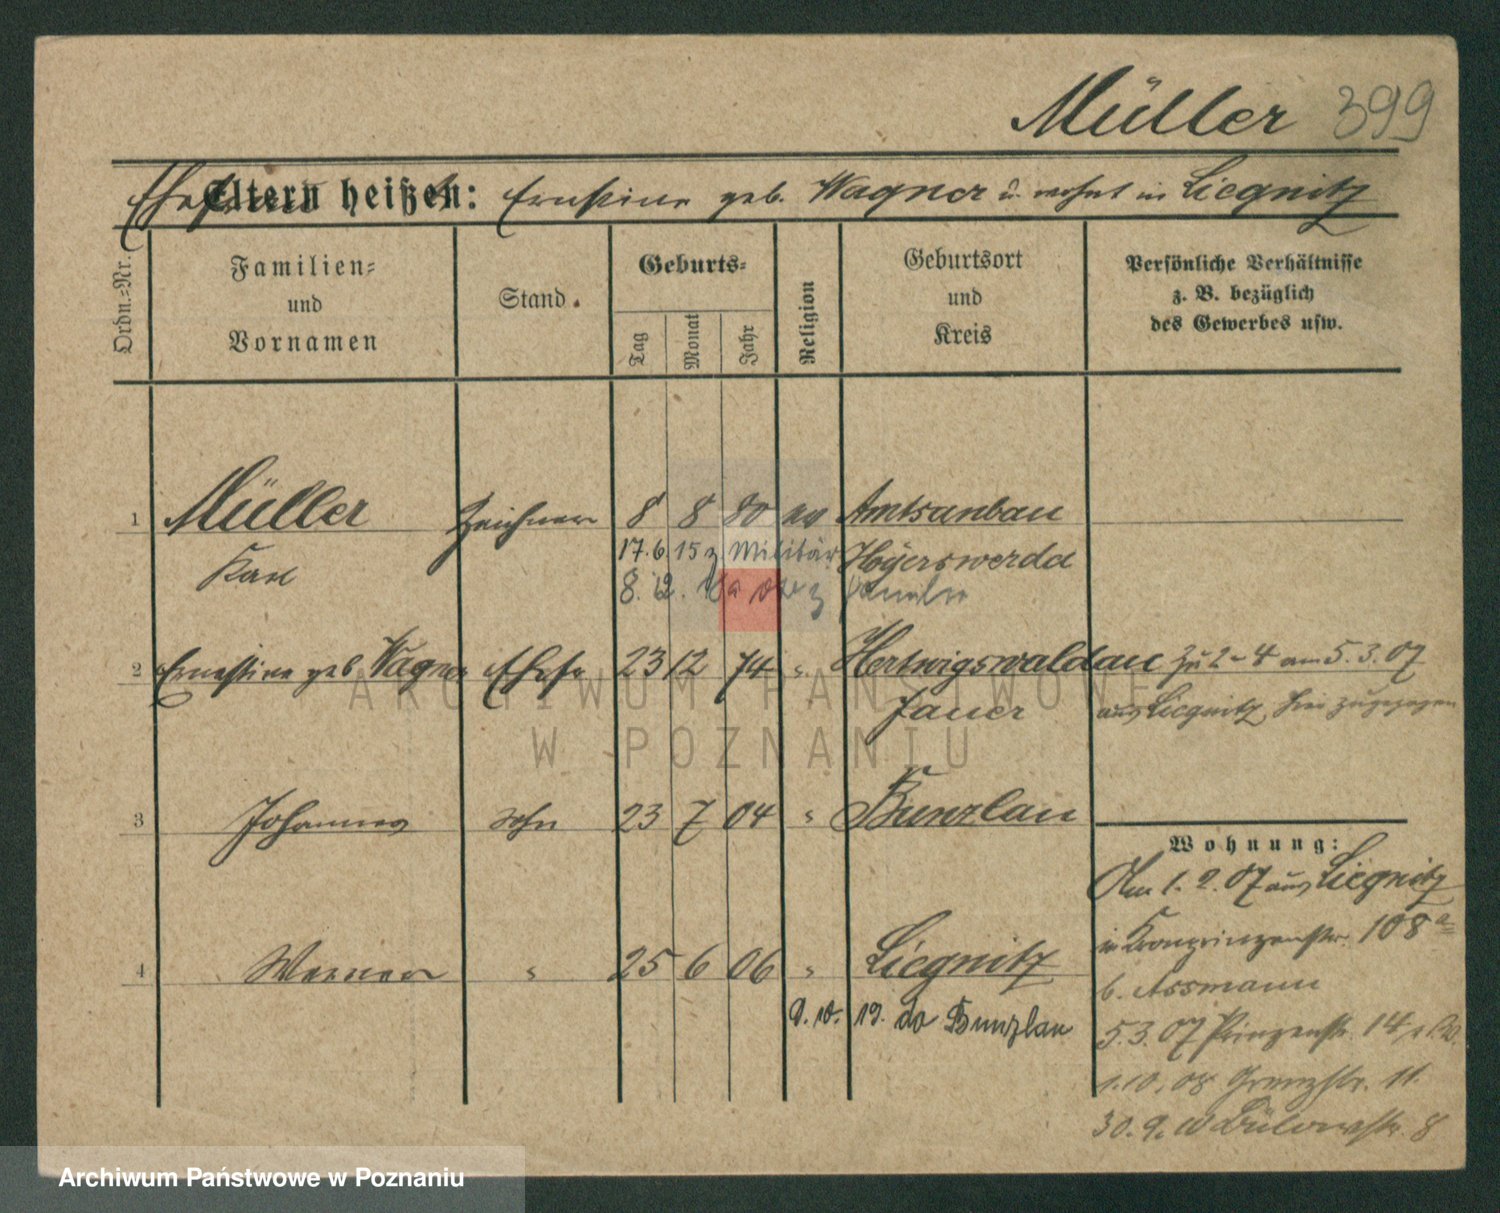 Müller 399
Eltern heißen: Ehefrau Ernestine geb. Wagner u. wohnt in Liegnitz
Ordn.-Nr.
Familien-
und
Vornamen
Stand.
Geburts-
Tag
Monat
Jahr
Religion
Geburtsort
und
Kreis
Persönliche Verhältnisse
z. B. bezüglich
des Gewerbes usw.
1 Müller Zeichner 8 8 80 ev Amtsanbau
Karl
17. 6. 15 z Militär
Hoyerswerda
8. 12. 18 z Familie
2 Ernestine geb. Wagner Ehefr 23 12 74 " Hertwigswaldau zu 2-4 am 5.3.07
Jauer aus Liegnitz hier zugezogen
3 Johannes Sohn 23 7 04 " Bunzlau
Wohnung:
Am 1. 2. 07 aus Liegnitz
in Kronprinzenstr. 108a
b. Assmann
4 Werner " 25 6 06 " Liegnitz
9. 10. 19. do Bunzlau
5.3.07 Prinzenstr. 14
1.10.08 Grenzstr. 11
30. 9. 10 Bülowstr. 8
ARCHIWUM PAŃSTWOWE
W POZNANIU
Archiwum Państwowe w Poznaniu